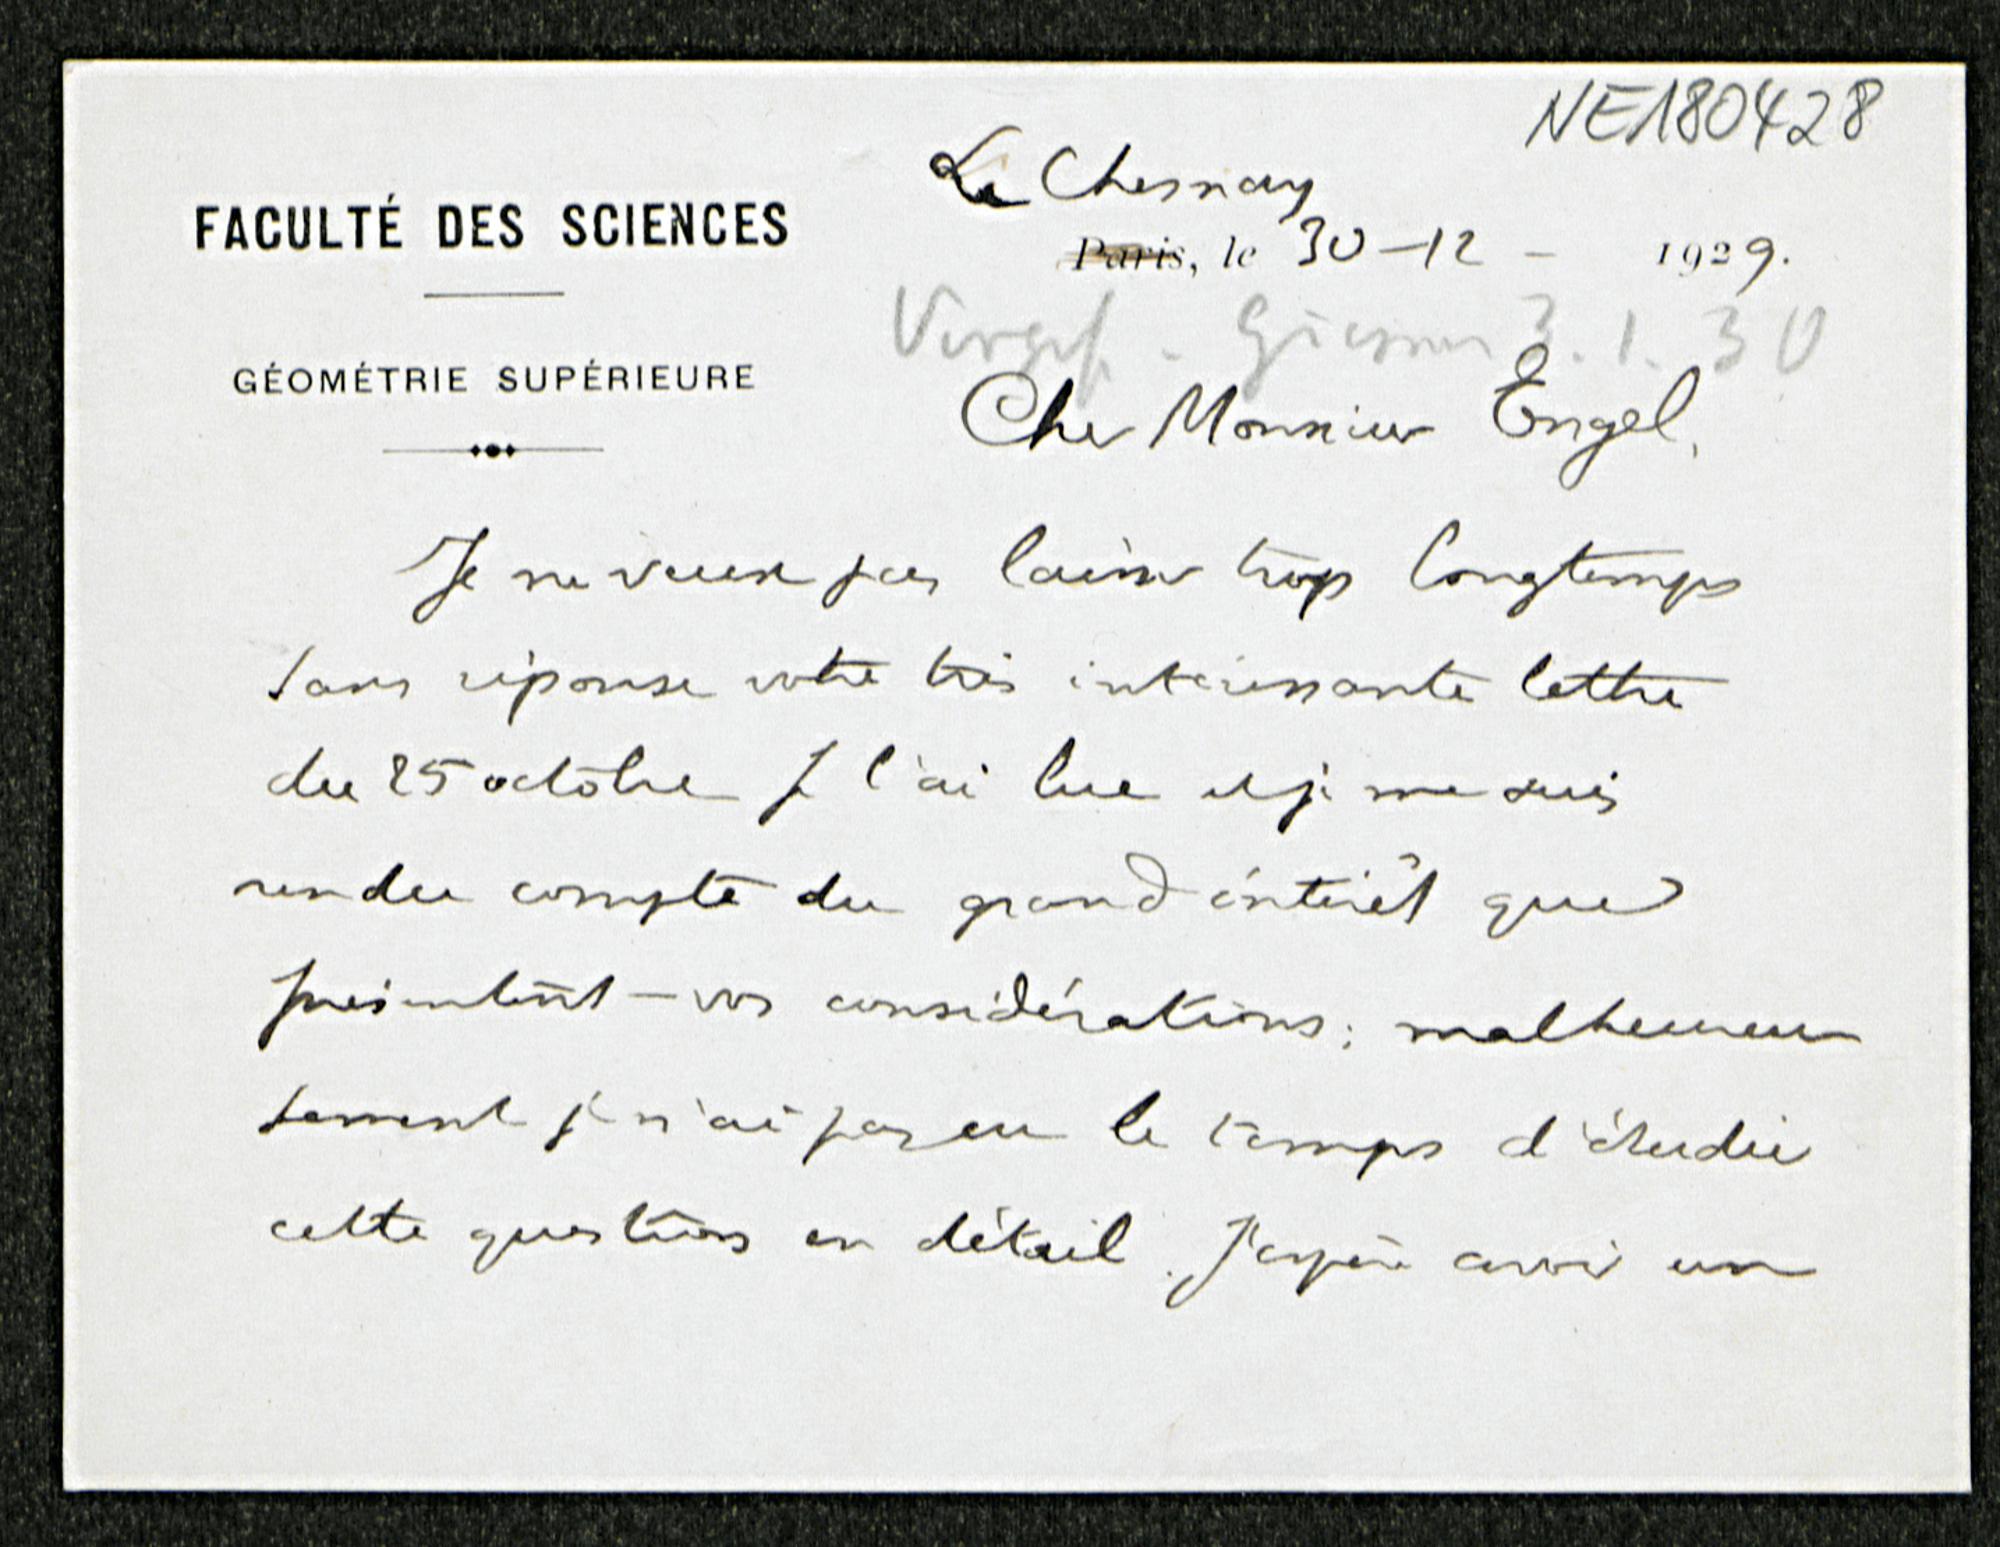 NE180428
FACULTÉ DES SCIENCES
GÉOMÉTRIE SUPÉRIEURE
Le Chesnay
Paris, le 30-12 - 1929.
Giessen 3.1.30
Cher Monsieur Engel,
Je ne veux pas laisser trop longtemps
sans réponse votre très intéressante lettre
du 25 octobre Je l'ai lue et je me suis
rendu compte du grand intérêt que
présentent vos considérations; malheureu
sement je n'ai pas eu le temps d'étudier
cette question en détail. J'espère avoir un